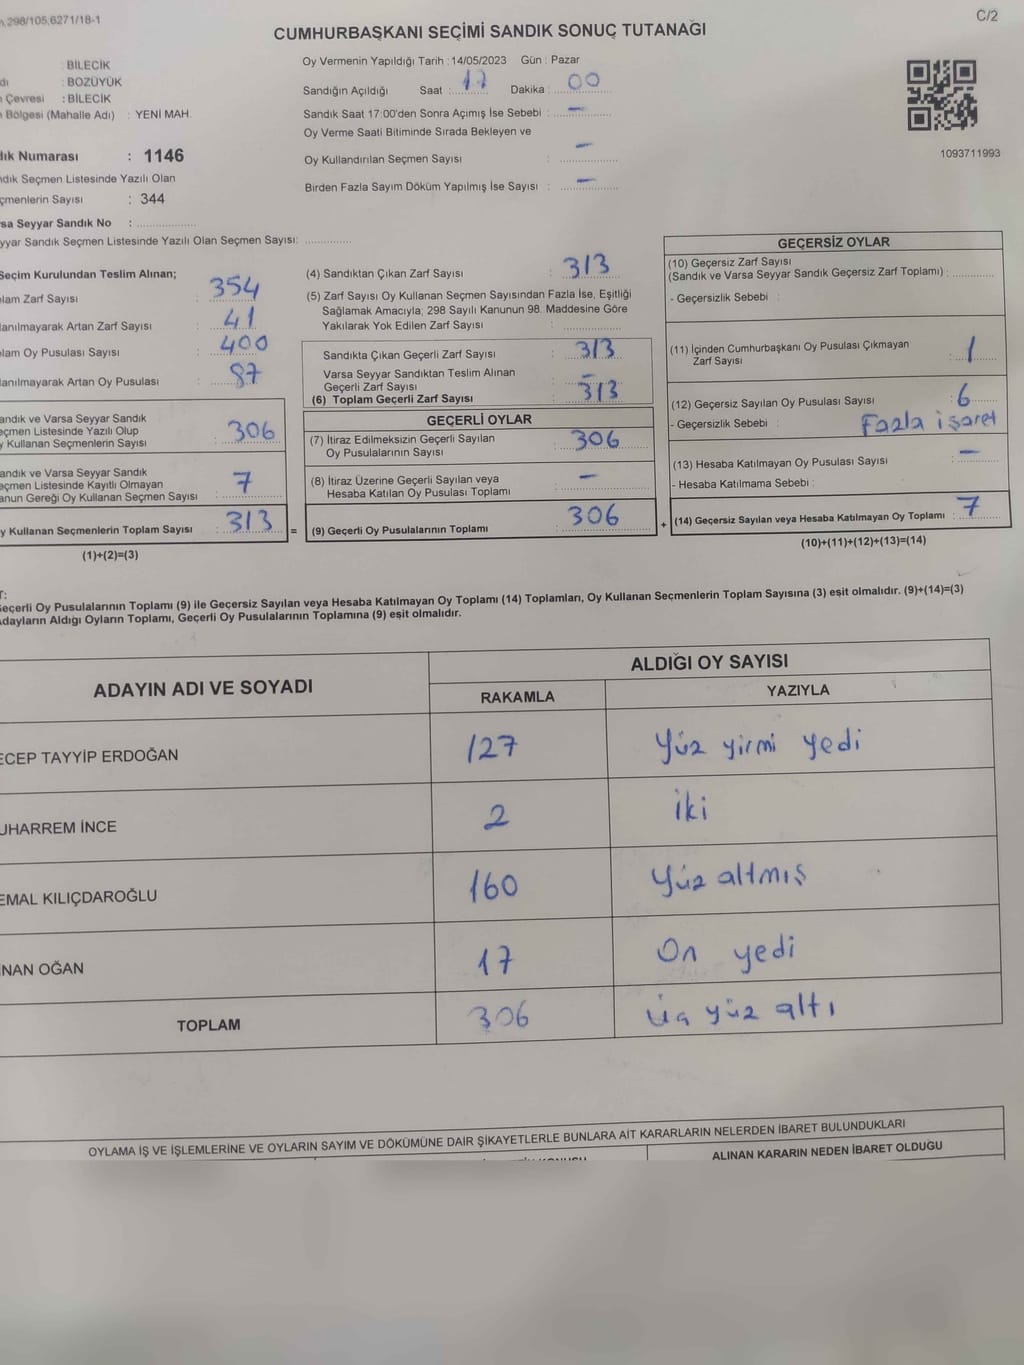 298/105,6271/18-1
C/2
CUMHURBAŞKANI SEÇİMİ SANDIK SONUÇ TUTANAĞI
: BİLECİK
: BOZÜYÜK
Çevresi : BİLECİK
Bölgesi (Mahalle Adı) : YENİ MAH.
Numarası : 1146
Seçmen Listesinde Yazılı Olan
Sayısı : 344
Seyyar Sandık No : ....................
Sandık Seçmen Listesinde Yazılı Olan Seçmen Sayısı: ...............
Oy Vermenin Yapıldığı Tarih : 14/05/2023 Gün : Pazar
Sandığın Açıldığı Saat : 17 Dakika : 00
Sandık Saat 17:00'den Sonra Açımış İse Sebebi : -
Oy Verme Saati Bitiminde Sırada Bekleyen ve
Oy Kullandırılan Seçmen Sayısı : -
Birden Fazla Sayım Döküm Yapılmış İse Sayısı : -
1093711993
Seçim Kurulundan Teslim Alınan;
Zarf Sayısı : 354
Artan Zarf Sayısı : 41
Oy Pusulası Sayısı : 400
Artan Oy Pusulası : 87
ve Varsa Seyyar Sandık
Listesinde Yazılı Olup
Kullanan Seçmenlerin Sayısı : 306
ve Varsa Seyyar Sandık
Listesinde Kayıtlı Olmayan
Gereği Oy Kullanan Seçmen Sayısı : 7
Kullanan Seçmenlerin Toplam Sayısı : 313 =
(1)+(2)=(3)
(4) Sandıktan Çıkan Zarf Sayısı : 313
(5) Zarf Sayısı Oy Kullanan Seçmen Sayısından Fazla İse, Eşitliği
Sağlamak Amacıyla; 298 Sayılı Kanunun 98. Maddesine Göre
Yakılarak Yok Edilen Zarf Sayısı : ....................
Sandıkta Çıkan Geçerli Zarf Sayısı : 313
Varsa Seyyar Sandıktan Teslim Alınan
Geçerli Zarf Sayısı : -
(6) Toplam Geçerli Zarf Sayısı : 313
GEÇERLİ OYLAR
(7) İtiraz Edilmeksizin Geçerli Sayılan
Oy Pusulalarının Sayısı : 306
(8) İtiraz Üzerine Geçerli Sayılan veya
Hesaba Katılan Oy Pusulası Toplamı : -
(9) Geçerli Oy Pusulalarının Toplamı : 306 +
GEÇERSİZ OYLAR
(10) Geçersiz Zarf Sayısı
(Sandık ve Varsa Seyyar Sandık Geçersiz Zarf Toplamı) : ............
- Geçersizlik Sebebi :
(11) İçinden Cumhurbaşkanı Oy Pusulası Çıkmayan
Zarf Sayısı : 1
(12) Geçersiz Sayılan Oy Pusulası Sayısı : 6
- Geçersizlik Sebebi : Fazla işaret
(13) Hesaba Katılmayan Oy Pusulası Sayısı : -
- Hesaba Katılmama Sebebi :
(14) Geçersiz Sayılan veya Hesaba Katılmayan Oy Toplamı : 7
(10)+(11)+(12)+(13)=(14)
Geçerli Oy Pusulalarının Toplamı (9) ile Geçersiz Sayılan veya Hesaba Katılmayan Oy Toplamı (14) Toplamları, Oy Kullanan Seçmenlerin Toplam Sayısına (3) eşit olmalıdır. (9)+(14)=(3)
Adayların Aldığı Oyların Toplamı, Geçerli Oy Pusulalarının Toplamına (9) eşit olmalıdır.
ADAYIN ADI VE SOYADI ALDIĞI OY SAYISI
RAKAMLA YAZIYLA
ECEP TAYYİP ERDOĞAN 127 Yüz yirmi yedi
UHARREM İNCE 2 iki
EMAL KILIÇDAROĞLU 160 Yüz altmış
İNAN OĞAN 17 On yedi
TOPLAM 306 Üç yüz altı
OYLAMA İŞ VE İŞLEMLERİNE VE OYLARIN SAYIM VE DÖKÜMÜNE DAİR ŞİKAYETLERLE BUNLARA AİT KARARLARIN NELERDEN İBARET BULUNDUKLARI
ALINAN KARARIN NEDEN İBARET OLDUĞU